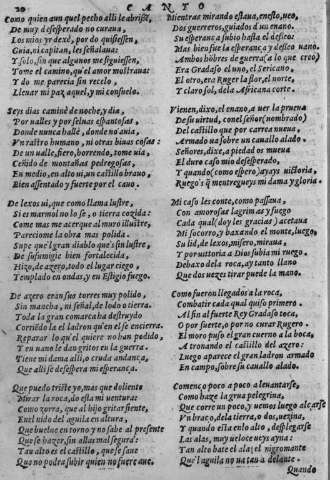 20 CANTO
Como quien aun quel pecho alli le abrisse,
De muy desesperado no curaua,
De mis ojos dexel, por do quisiessen,
Guia, ni capitan, les señalaua:
Y solo, sin que algunos me siguiessen,
Tome el camino, qu'el amor mostraua:
Y do me parecia sin recelo,
Llenar mi paz aquel, y mi consuelo.
Seys dias caminè de noche, y dia,
Por valles y por seluas espantosas,
Donde nunca hallè, donde no auia,
Ni rastro humano, ni otras biuas cosas:
De un valle, fiero, horrendo, tome uia,
Ceñido de montañas pedregosas,
En medio, en alto ui, un castillo brauo,
Bien assentado y fuerte por el cauo.
De lexos ui, que como llama lustre,
Si es marmol no lo sè, o tierra cozida:
Come mas me acerquè al muro illustre,
Pareciome la obra mas polida.
Supe que l gran diablo que's sin lustre,
De sufumigio bien fortalecida,
Hizo, de azero, todo el lugar ciego,
Templado en ondas, y en Estigio fuego.
De azero eran sus torres muy polido,
Sin mancha, ni señal, de lodo o tierra.
Toda la gran comarca ha destruydo
Corriēdo la el ladron qu'en el se encierra.
Reparar lo qu'el quiere no han podido,
Y en uano le dan gritos en la guerra.
Tiene mi dama alli, o cruda andança,
Que alli se desespera mi esperança.
Que puedo triste yo, mas que doliente
Mirar la roca, do esta mi uentura:
Como zorra, que al hijo gritar siente,
En el nido del aguila en altura,
Que buelue en torno y no sabe al presente
Que se hazer, sin allas mal segura?
Tan alto es el castillo, que se saue
Que no podra subir quien no fuere aue.
Mientras mirando estaua, en esto, ueo,
Dos guerreros, guiados de un enano.
Su esperança subio hasta el desseo:
Mas bien fue la esperança y desseo uano.
Ambos hōbres de guerra (a lo que creo)
Era Gradasso el uno, el Sericano,
El otro, era Ruger la flor, el norte,
Y claro sol, de la Africana corte.
Vienen, dixo, el enano, a uer la prueua
De su uirtud, con el señor (nombrado)
Del castillo que por carrea nueua,
Armado ua sobre un cauallo alado.
Señores, dixe, a piedad os mueua
El duro caso mio desesperado,
Y quando (como espero) ayays uictoria,
Ruego's que m entregueys mi dama y gloria.
Mi caso les conte, como passaua,
Con amorosas lagrimas y fuego
Cada qual (doy les gracias) acetaua
Mi socorro, y baxando el monte, luego,
Su lid, de lexos, misero, miraua,
Y por uitoria a Dios subia mi ruego.
Debaxo de la roca, ay tanto llano
Que dos uezes tirar puede la mano.
Como fueron llegados a la roca,
Combatir cada qual quiso primero.
Al fin al fuerte Rey Gradaso toca,
O por suerte, o por no curar Rugero.
El moro puso el gran cuerno a la boca,
Atronando el castillo del azero:
Luego aparece el gran ladron armado
En campo, sobre su cauallo alado.
Començo poco a poco a leuantarse,
Como haze la grua pelegrina,
Que corre un poco, y uemos luego alçarse
Vn braço, de la tierra, o dos, uezina,
Y quando està en lo alto, desplegarse
Las alas, muy ueloce uezs ayna:
Tan alto bate el ala el nigromante
Que l'aguila no ua tan a delante.
Quando